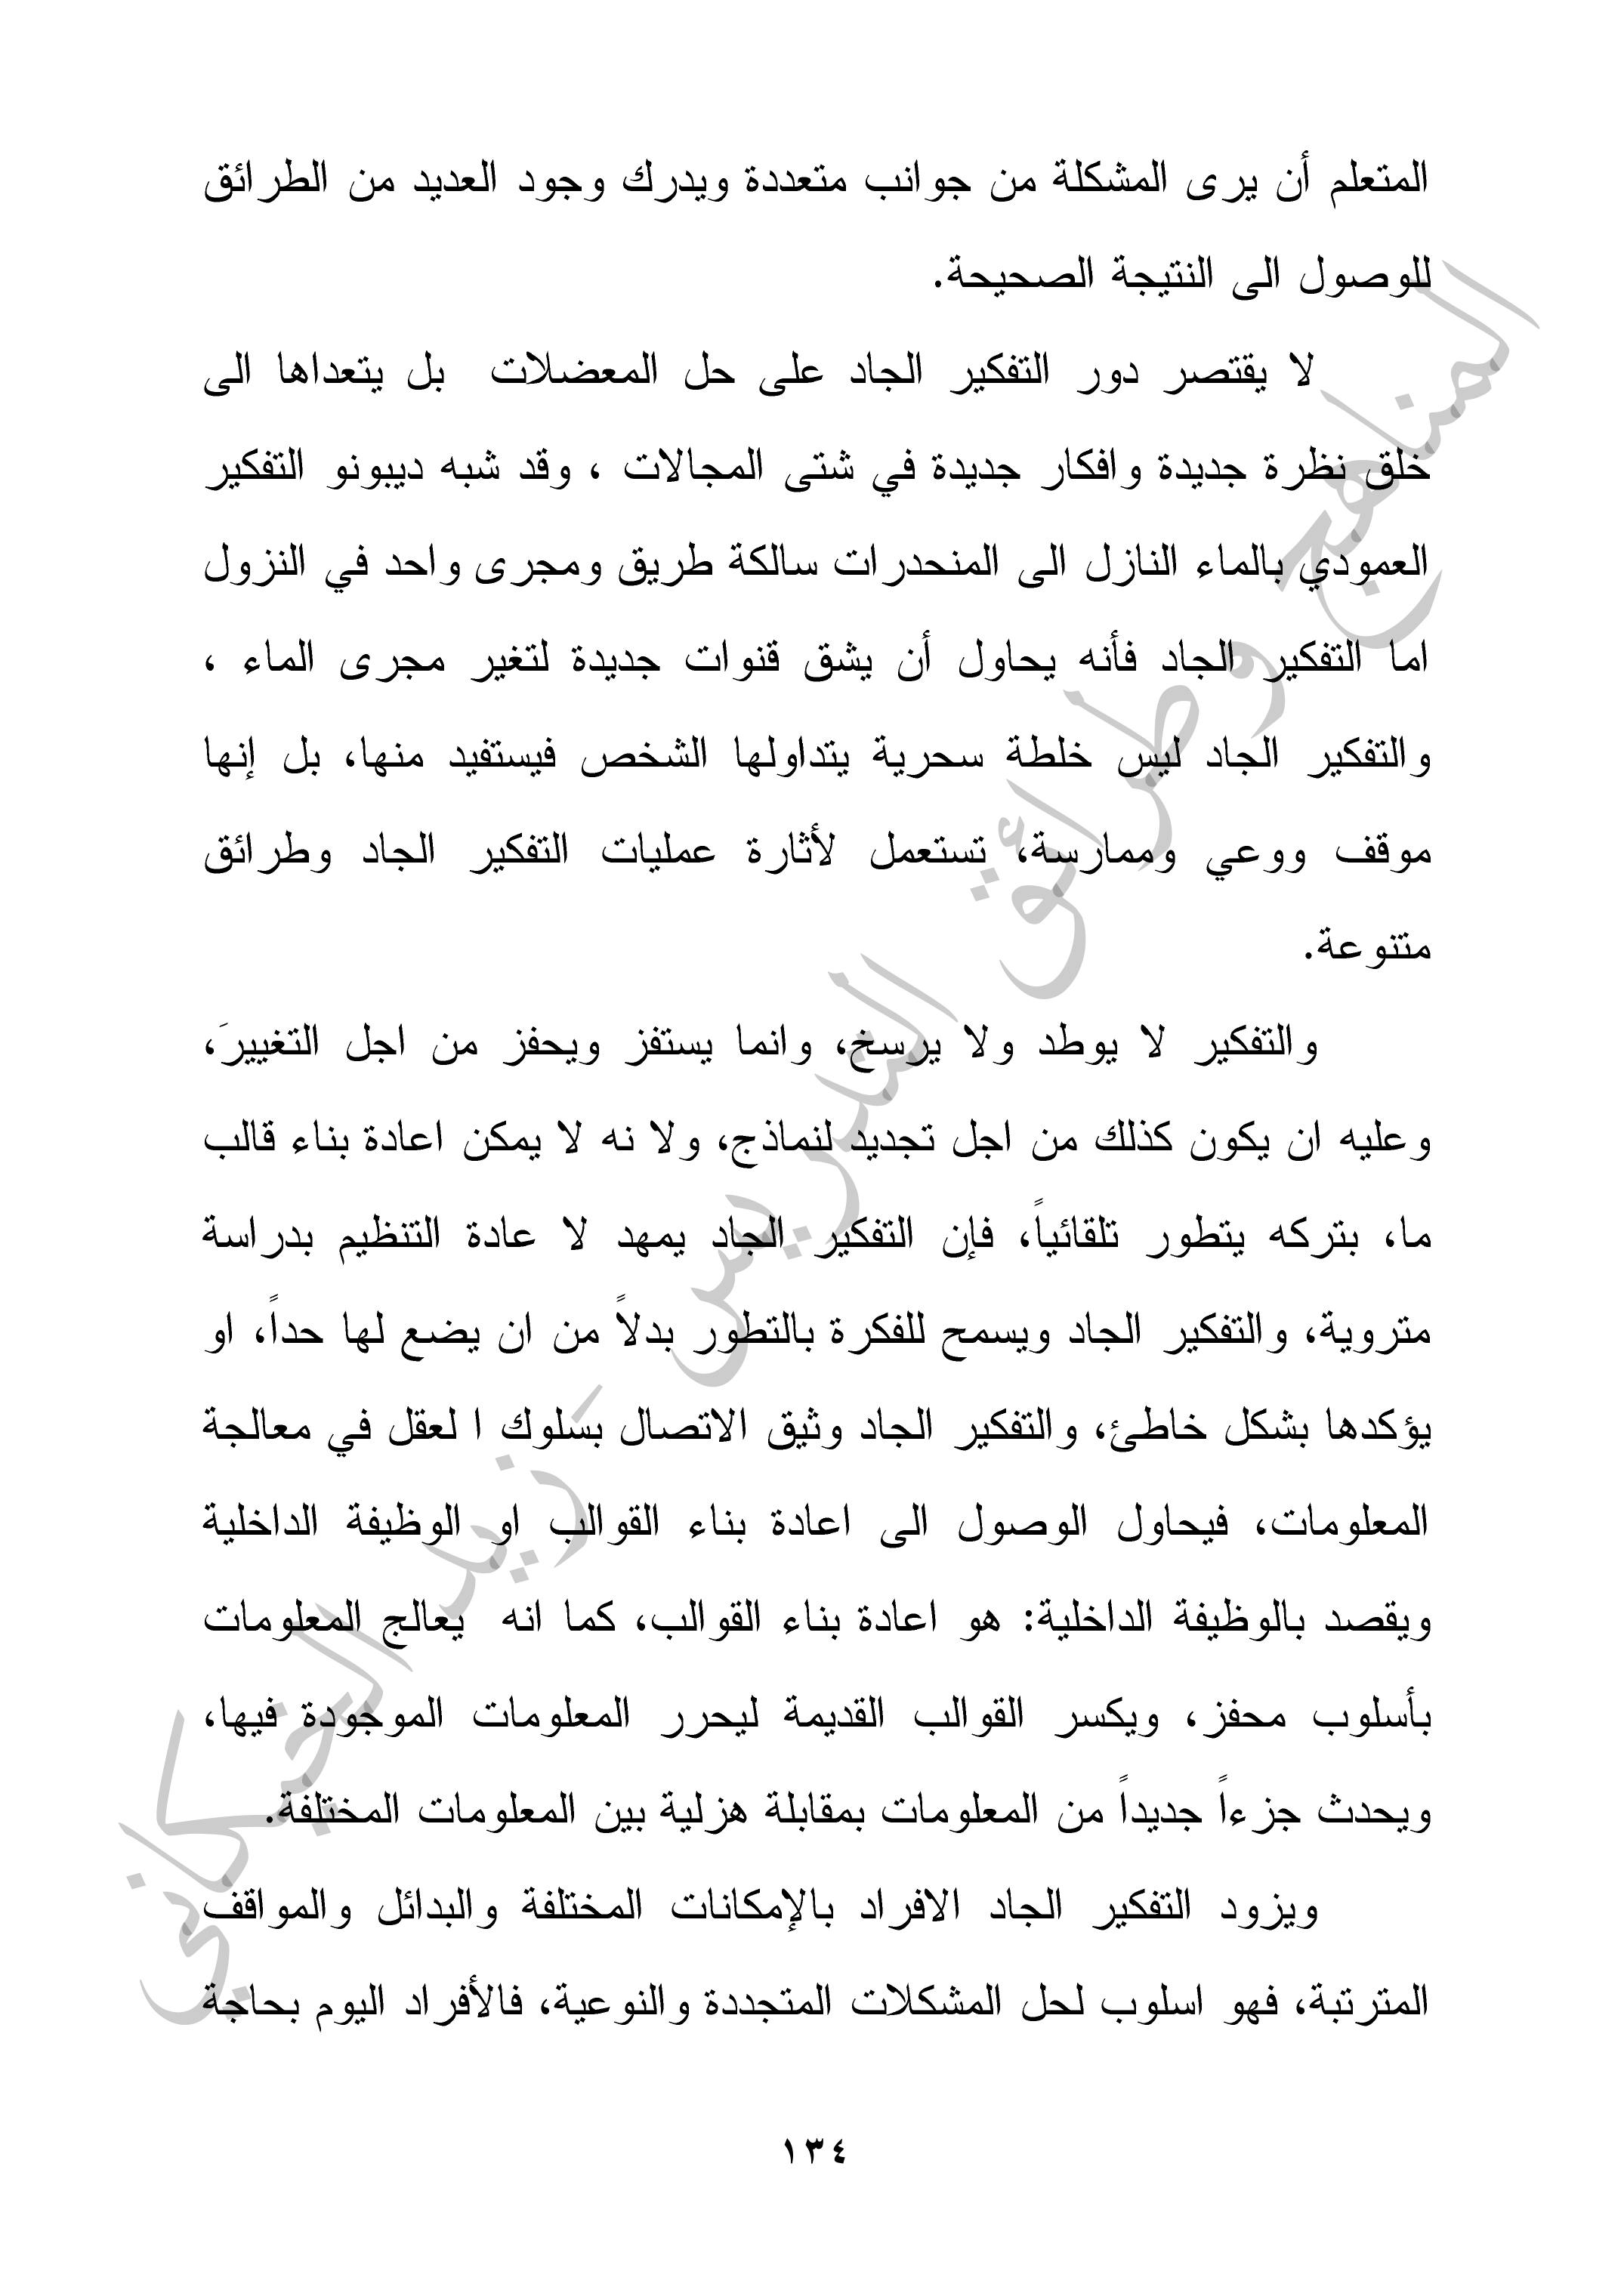 المتعلم أن يرى المشكلة من جوانب متعددة ويدرك وجود العديد من الطرائق
للوصول الى النتيجة الصحيحة.
لا يقتصر دور التفكير الجاد على حل المعضلات بل يتعداها الى
خلق نظرة جديدة وافكار جديدة في شتى المجالات ، وقد شبه ديبونو التفكير
العمودي بالماء النازل الى المنحدرات سالكة طريق ومجرى واحد في النزول
اما التفكير الجاد فأنه يحاول أن يشق قنوات جديدة لتغير مجرى الماء ،
والتفكير الجاد ليس خلطة سحرية يتداولها الشخص فيستفيد منها، بل إنها
موقف ووعي وممارسة، تستعمل لأثارة عمليات التفكير الجاد وطرائق
متنوعة.
والتفكير لا يوطد ولا يرسخ، وانما يستفز ويحفز من اجل التغييرَ،
وعليه ان يكون كذلك من اجل تجديد لنماذج، ولا نه لا يمكن اعادة بناء قالب
ما، بتركه يتطور تلقائياً، فإن التفكير الجاد يمهد لا عادة التنظيم بدراسة
متروية، والتفكير الجاد ويسمح للفكرة بالتطور بدلاً من ان يضع لها حداً، او
يؤكدها بشكل خاطئ، والتفكير الجاد وثيق الاتصال بسلوك ا لعقل في معالجة
المعلومات، فيحاول الوصول الى اعادة بناء القوالب او الوظيفة الداخلية
ويقصد بالوظيفة الداخلية: هو اعادة بناء القوالب، كما انه يعالج المعلومات
بأسلوب محفز، ويكسر القوالب القديمة ليحرر المعلومات الموجودة فيها،
ويحدث جزءاً جديداً من المعلومات بمقابلة هزلية بين المعلومات المختلفة.
ويزود التفكير الجاد الافراد بالإمكانات المختلفة والبدائل والمواقف
المترتبة، فهو اسلوب لحل المشكلات المتجددة والنوعية، فالأفراد اليوم بحاجة
١٣٤
المناهج وطرائق التدريس - زيد الخيكاني